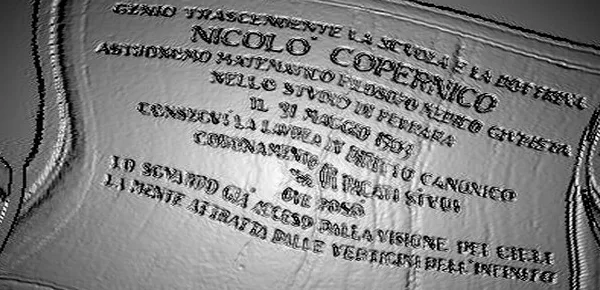 GENIO TRASCENDENTE LA SCUOLA E LA DOTTRINA
NICOLO' COPERNICO
ASTRONOMO MATEMATICO FILOSOFO MEDICO GIURISTA
NELLO STUDIO DI FERRARA
IL 31 MAGGIO 1503
CONSEGUÌ LA LAUREA IN DIRITTO CANONICO
CORONAMENTO DI SUDI
OVE POSÒ
LO SGUARDO GIÀ ACCESO DALLA VISIONE DEI CIELI
LA MENTE ATTRATTA DALLE VERTIGINI DELL'INFINITO